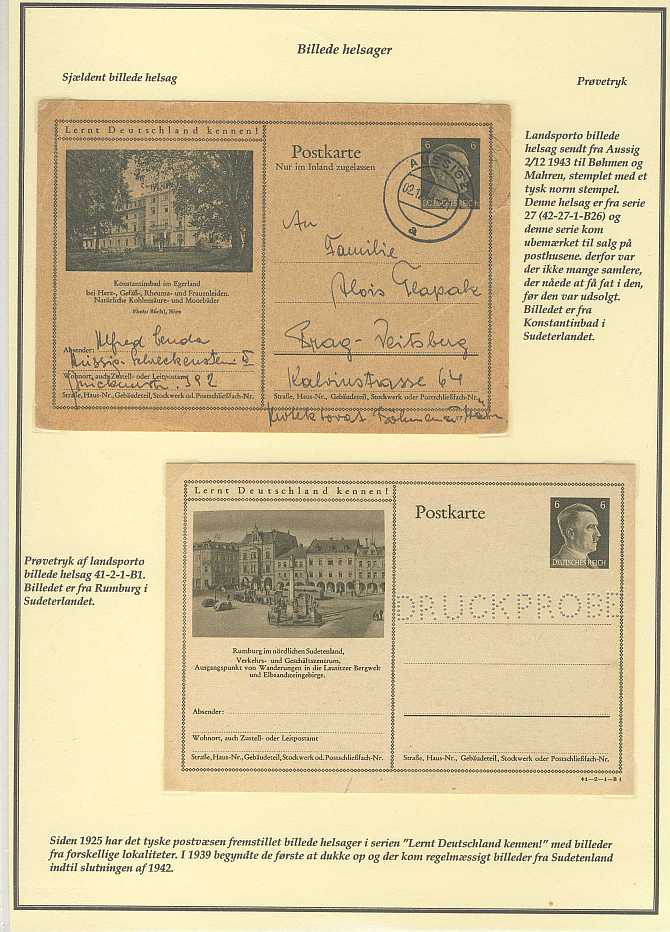 Billede helsager
Sjældent billede helsag
Prøvetryk
Lernt Deutschland kennen!
Konstantinbad im Egerland
bei Herz-, Gefäß-, Rheuma- und Frauenleiden.
Natürliche Kohlensäure- und Moorbäder
Photo Bächl, Bürn
Absender:
Alfred Senda
Aussig-Schreckenstein II
Wohnort, auch Zustell- oder Leitpostamt
392
Straße, Haus-Nr., Gebäudeteil, Stockwerk od. Postschließfach-Nr.
Postkarte
Nur im Inland zugelassen
6 6
DEUTSCHES REICH
AUSSIG 2
02.1
a
An
Familie
Alois Tlapak
Prag-Veitsberg
Kalvinstrasse 64
Straße, Haus-Nr., Gebäudeteil, Stockwerk oder Postschließfach-Nr.
Protektorat Böhmen u. Mähren
Landsporto billede
helsag sendt fra Aussig
2/12 1943 til Bøhmen og
Mahren, stemplet med et
tysk norm stempel.
Denne helsag er fra serie
27 (42-27-1-B26) og
denne serie kom
ubemærket til salg på
posthusene. derfor var
der ikke mange samlere,
der nåede at få fat i den,
før den var udsolgt.
Billedet er fra
Konstantinbad i
Sudeterlandet.
Prøvetryk af landsporto
billede helsag 41-2-1-B1.
Billedet er fra Rumburg i
Sudeterlandet.
Lernt Deutschland kennen!
Rumburg im nördlichen Sudetenland,
Verkehrs- und Geschäftszentrum.
Ausgangspunkt von Wanderungen in die Lausitzer Bergwelt
und Elbsandsteingebirge.
Absender:
Wohnort, auch Zustell- oder Leitpostamt
Straße, Haus-Nr., Gebäudeteil, Stockwerk od. Postschließfach-Nr.
Postkarte
6 6
DEUTSCHES REICH
DRUCKPROBE
Straße, Haus-Nr., Gebäudeteil, Stockwerk oder Postschließfach-Nr.
41-2-1-B1
Siden 1925 har det tyske postvæsen fremstillet billede helsager i serien "Lernt Deutschland kennen!" med billeder
fra forskellige lokaliteter. I 1939 begyndte de første at dukke op og der kom regelmæssigt billeder fra Sudetenland
indtil slutningen af 1942.